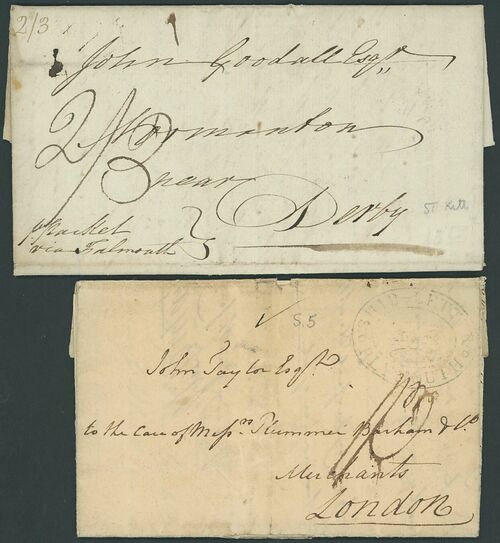 2/3
John Goodall Esqr
2/3
Normanton
near
Derby
St Kitts
p Packet
via Falmouth
S.5
SHIP LETTER
John Taylor Esqr.
to the Care of Messrs. Plummer Barham & Co.
Merchants
London